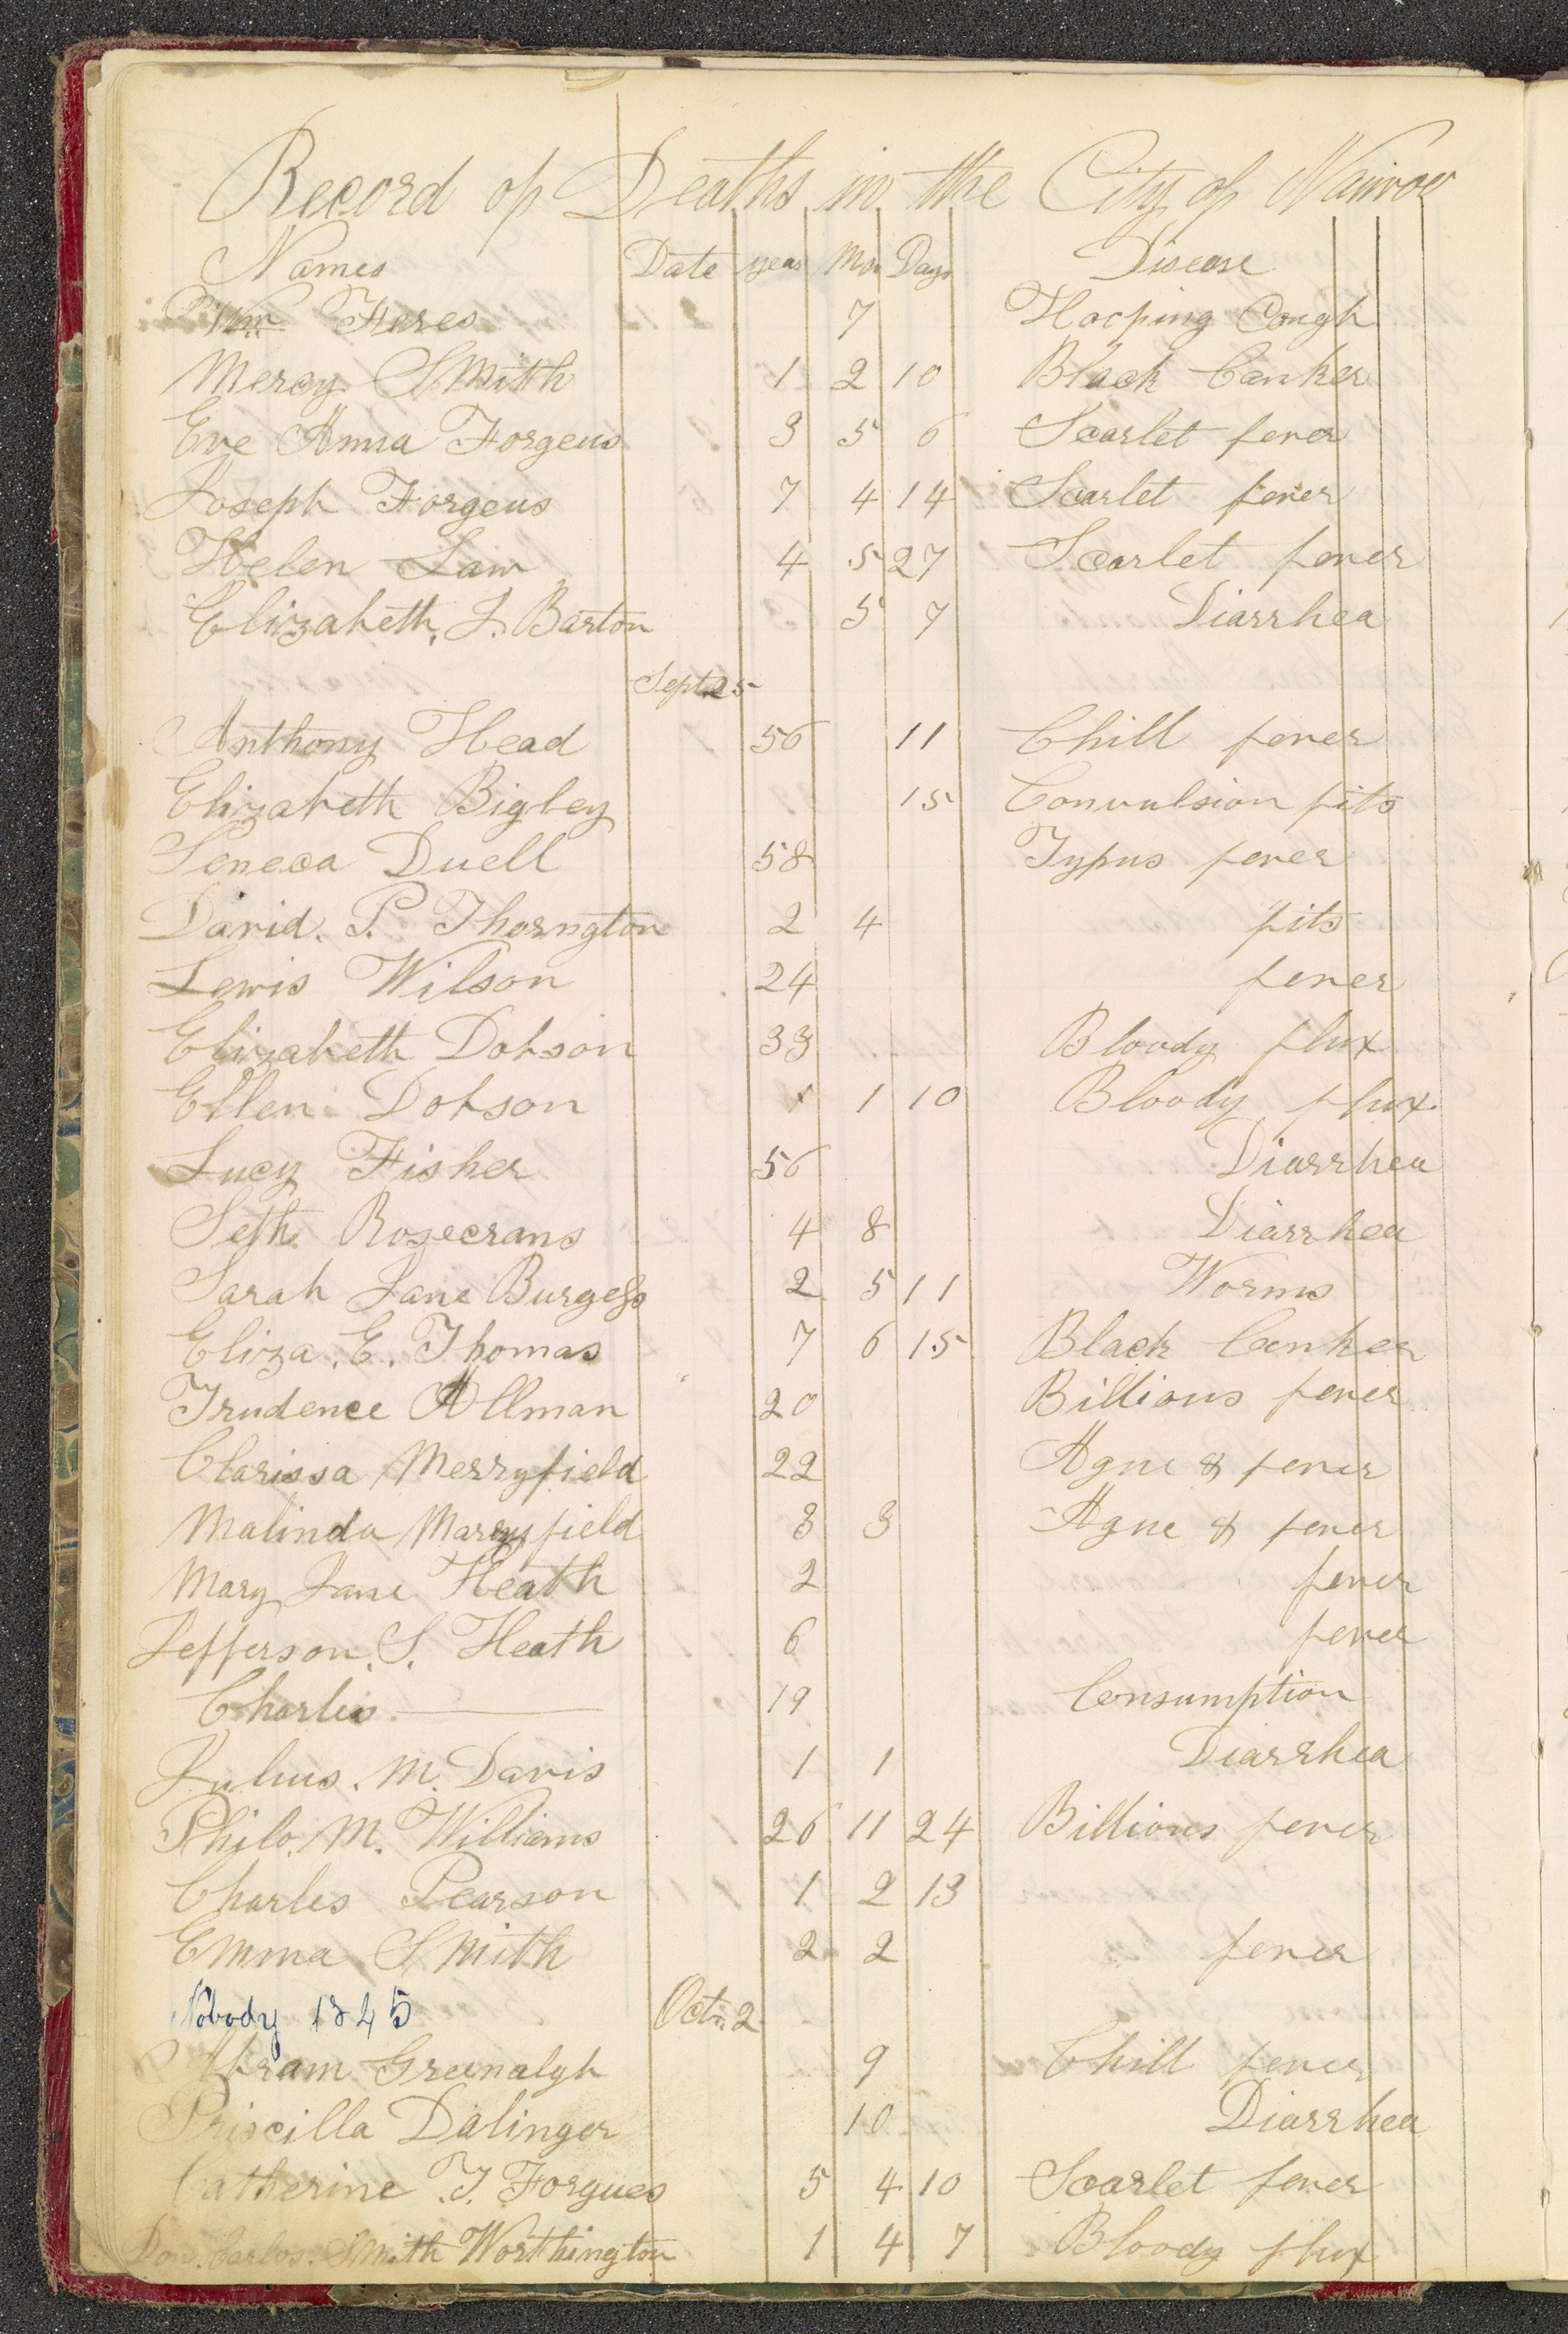 Record of Deaths in the City of Nauvoo
Names Date year Mon Days Disease
Wm Feres 7 Hooping Cough
Mercy Smith 1 2 10 Black Canker
Eve Anna Forgeus 3 5 6 Scarlet fever
Joseph Forgeus 7 4 14 Scarlet fever
Helen Law 4 5 27 Scarlet fever
Elizabeth. J. Barton 5 7 Diarrhea
Sept. 25
Anthony Head 56 11 Chill fever
Elizabeth Bigley 15 Convulsion fits
Seneca Duell 58 Typus fever
David. P. Thorngton 2 4 fits
Lewis Wilson 24 fever
Elizabeth Dobson 33 Bloody flux
Ellen Dobson 1 10 Bloody flux
Lucy Fisher 56 Diarrhea
Seth Rosecrans 4 8 Diarrhea
Sarah Jane Burgess 2 5 11 Worms
Eliza. E. Thomas 7 6 15 Black Canker
Trudence Allman 20 Billious fever
Clarissa Merryfield 22 Ague & fever
Malinda Marryfield 3 3 Ague & fever
Mary Jane Heath 2 fever
Jefferson. S. Heath 6 fever
Charles 19 Consumption
Julius. M. Davis 1 1 Diarrhea
Philo. M. Williams 26 11 24 Billious fever
Charles Pearson 1 2 13
Emma Smith 2 2 fever
Nobody 1845 Oct. 2
Abram Greenalgh 9 Chill fever
Priscilla Dalinger 10 Diarrhea
Catherine. T. Forgues 5 4 10 Scarlet fever
Don. Carlos. Smith Worthington 1 4 7 Bloody flux